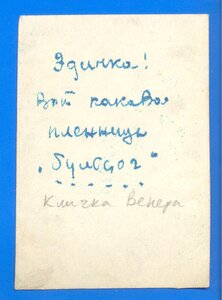 Эдичка!
Вот какова
пленница
„Бульдог“
Кличка Венера